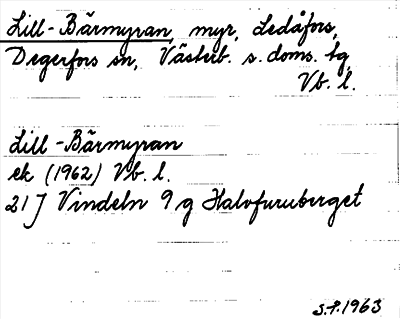 Lill-Bärmyran, myr, Ledåfors,
Degerfors sn, Västerb. s. doms. tg
Vb. l.
Lill-Bärmyran
ek (1962) Vb. l.
21 J Vindeln 9 g Halvfuruberget
S.P. 1963